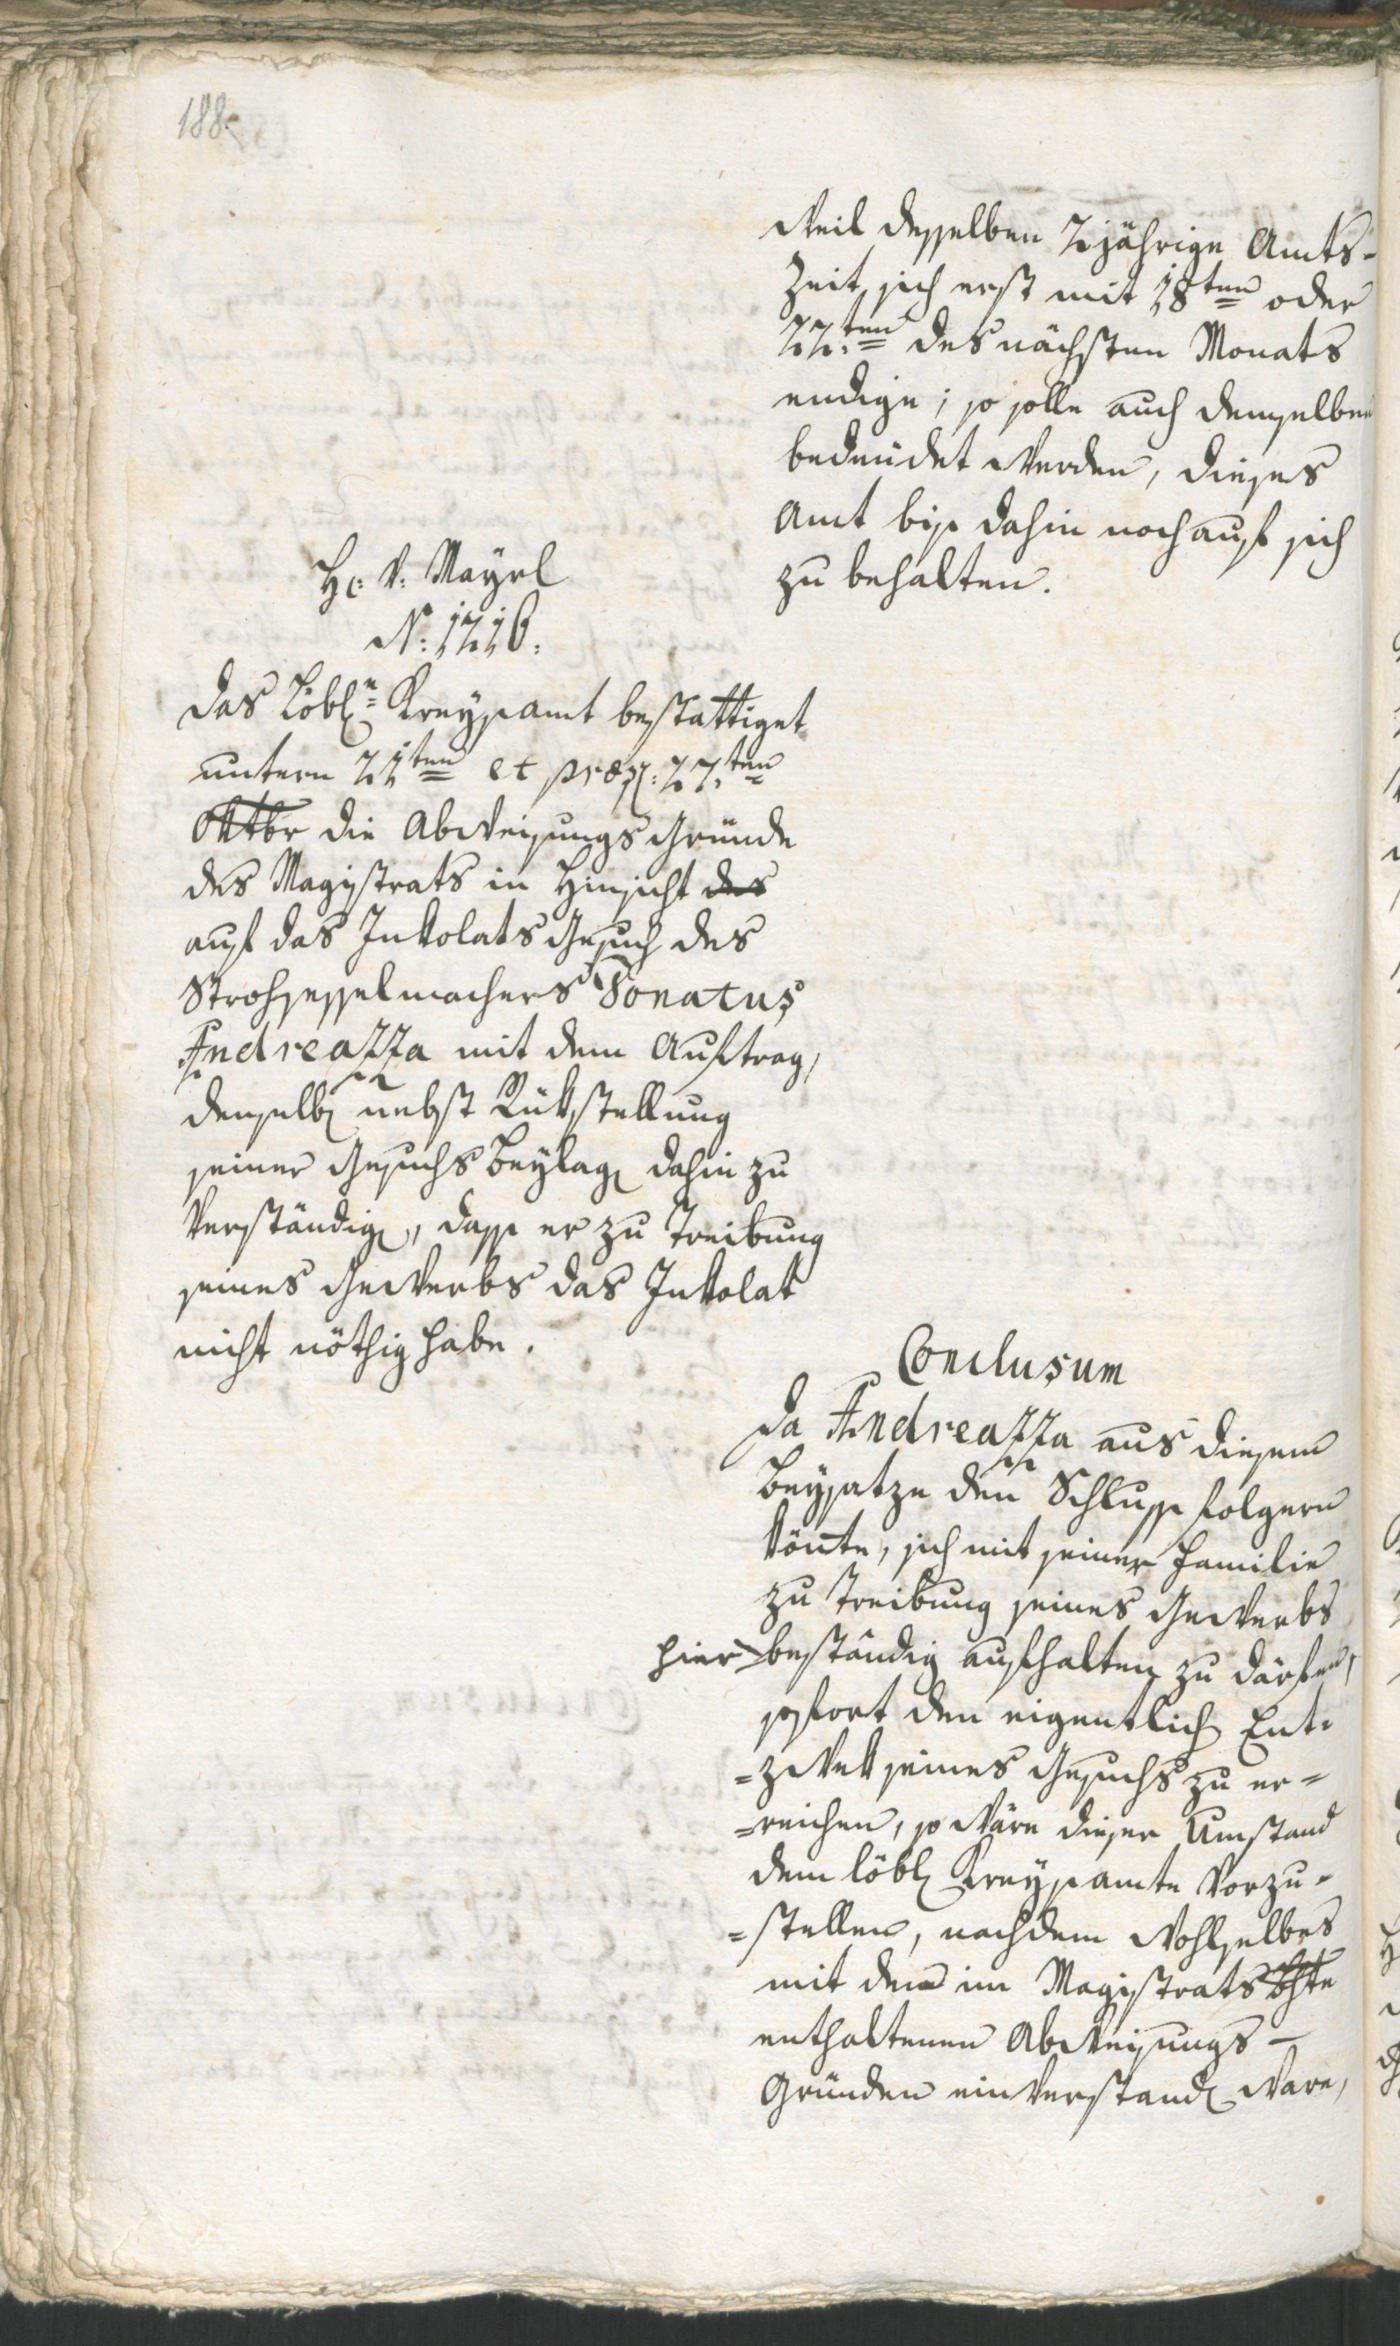 188.
weil desselben 2 jährige Amts-
Zeit, sich erst mit 18ten oder
22.ten des nächsten Monats
endige; so solle auch demselben
bedeüdet werden, dieses
Amt biß dahin noch auf sich
zu behalten.
H: v: Mayrl
N: 1216.
Das Löbl. Kreysamt bestättiget
untern 21ten et præs: 27.ten
Oktbr die Abweisungs Gründe
des Magistrats in Hinsicht des
auf das Inkolats Gesuch des
Strohsesselmachers Donatus
Andreazza mit dem Auftrag,
denselb. nebst Rükstellung
seiner Gesuchs Beylag. dahin zu
verständig., daß er zu Treibung
seines Gewerbs das Inkolat
nicht nöthig habe.
Conclusum
Da Andreazza aus diesem
Beysatze den Schluß folgern
könte, sich mit seiner Familie
zu Treibung seines Gewerbs
hier beständig aufhalten zu därfen,
sofort den eigentlich. Ent-
=zwek seines Gesuchs zu er=
=reichen, so wäre dieser Umstand
dem löbl. Kreysamte vorzu-
=stellen, nachdem wohlselbes
mit den im Magistrats
enthaltenen Abweisungs-
Gründen einverstand. ware,